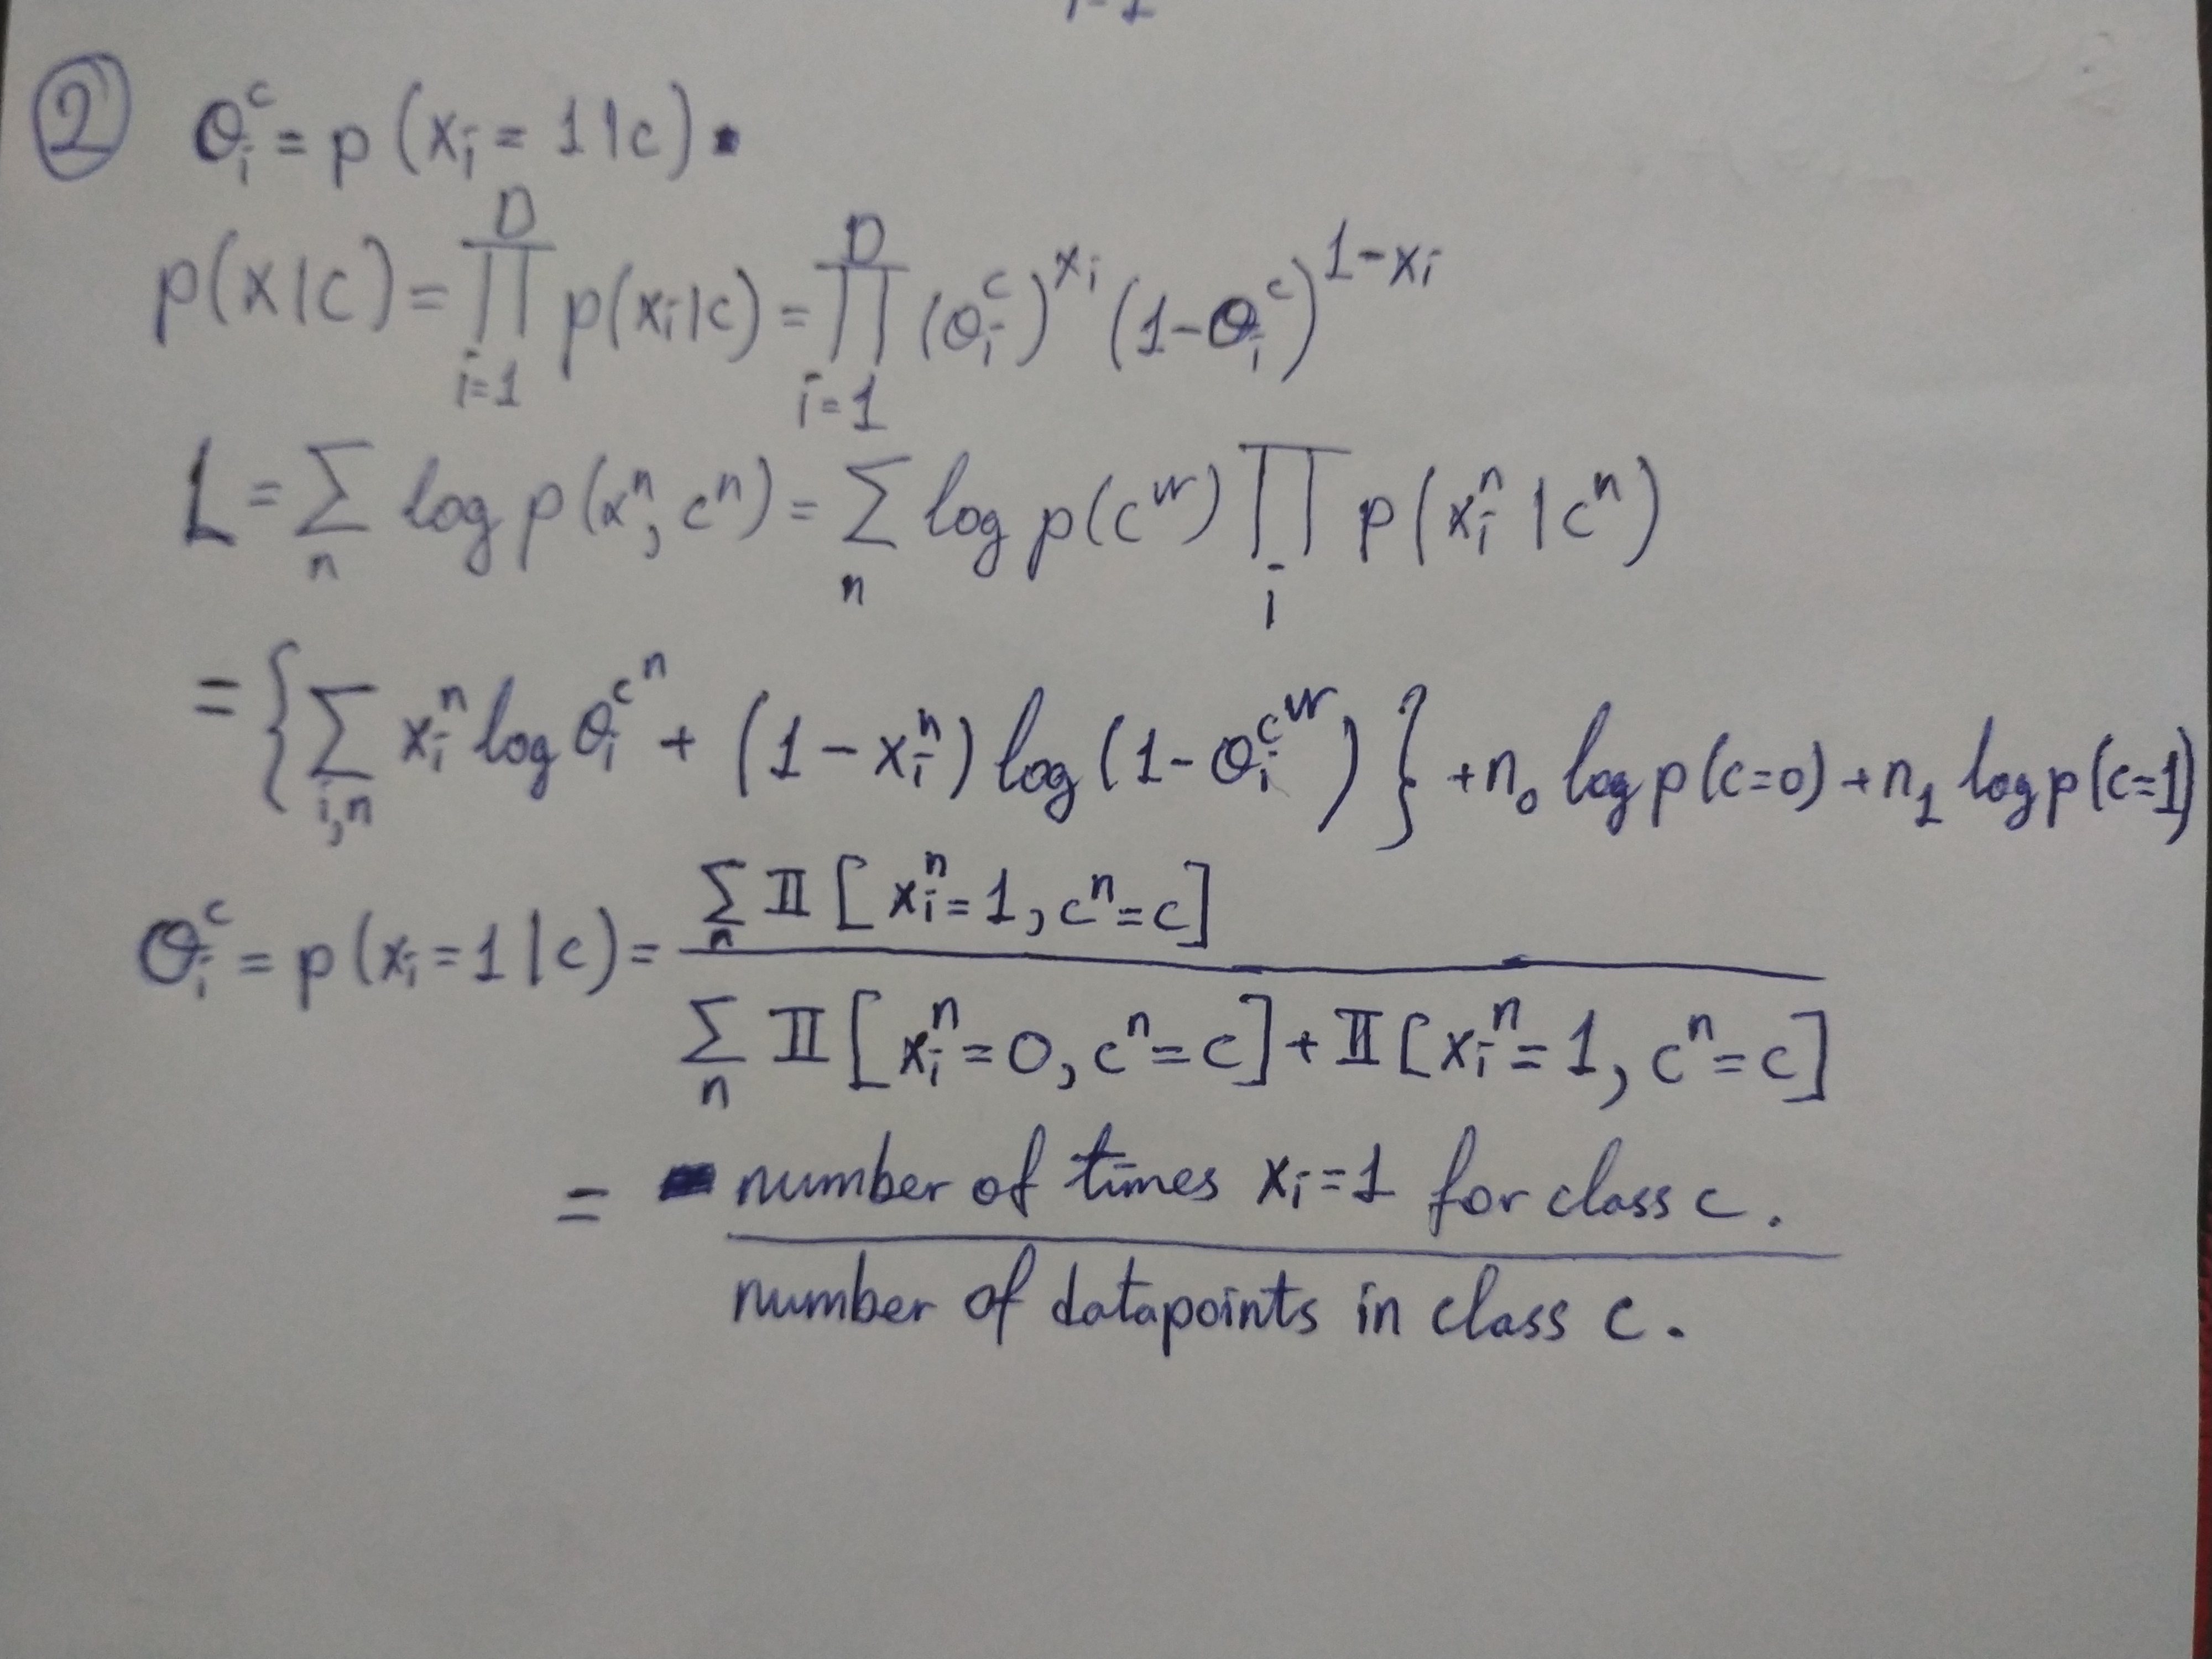 ② θᵢᶜ = p(xᵢ = 1 | c)
p(x|c) = ∏ᵢ₌₁ᴰ p(xᵢ|c) = ∏ᵢ₌₁ᴰ (θᵢᶜ)^{xᵢ} (1-θᵢᶜ)^{1-xᵢ}
L = ∑ₙ log p(xⁿ, cⁿ) = ∑ₙ log p(cⁿ) ∏ᵢ p(xᵢⁿ | cⁿ)
= { ∑_{i,n} xᵢⁿ log θᵢ^{cⁿ} + (1 - xᵢⁿ) log (1 - θᵢ^{cⁿ}) } + n₀ log p(c=0) + n₁ log p(c=1)
θᵢᶜ = p(xᵢ = 1 | c) = ∑ₙ 𝕀 [xᵢⁿ = 1, cⁿ = c]
∑ₙ 𝕀 [xᵢⁿ = 0, cⁿ = c] + 𝕀 [xᵢⁿ = 1, cⁿ = c]
= number of times xᵢ = 1 for class c.
number of datapoints in class c.